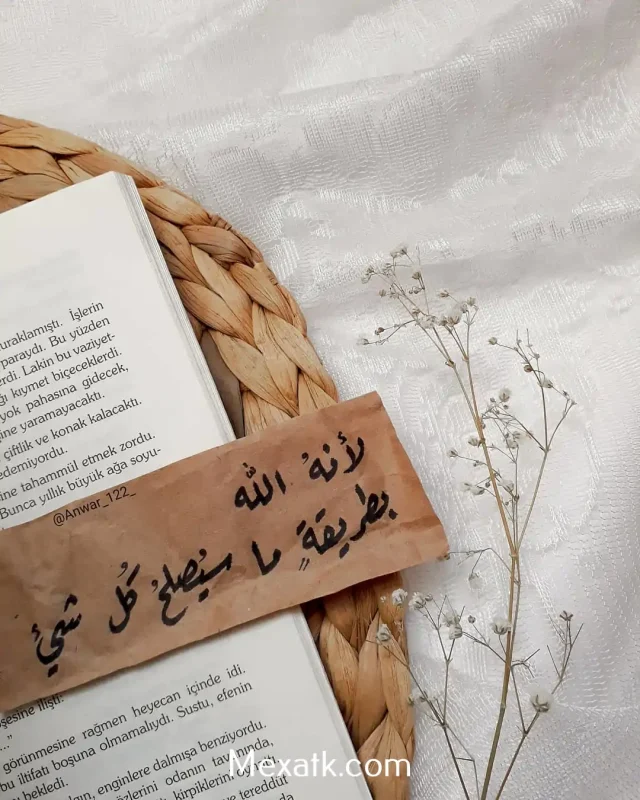 uraklamıştı. İşlerin
paraydı. Bu yüzden
erdi. Lakin bu vaziyet-
ğı kıymet biçeceklerdi.
yok pahasına gidecek,
ine yaramayacaktı.
çiftlik ve konak kalacaktı.
edemiyordu.
ine tahammül etmek zordu.
Bunca yıllık büyük ağa soyu-
@Anwar_122_
لأنهُ الله
بطريقةٍ ما سيُصلحُ كُل شيئ
şesine ilişti:
..."
görünmesine rağmen heyecan içinde idi.
bu iltifatı boşuna olmamalıydı. Sustu, efenin
bekledi.
algın, enginlere dalmışa benziyordu.
özlerini odanın tavanında,
kirpiklerini
ve tereddüt
Mexatk.com